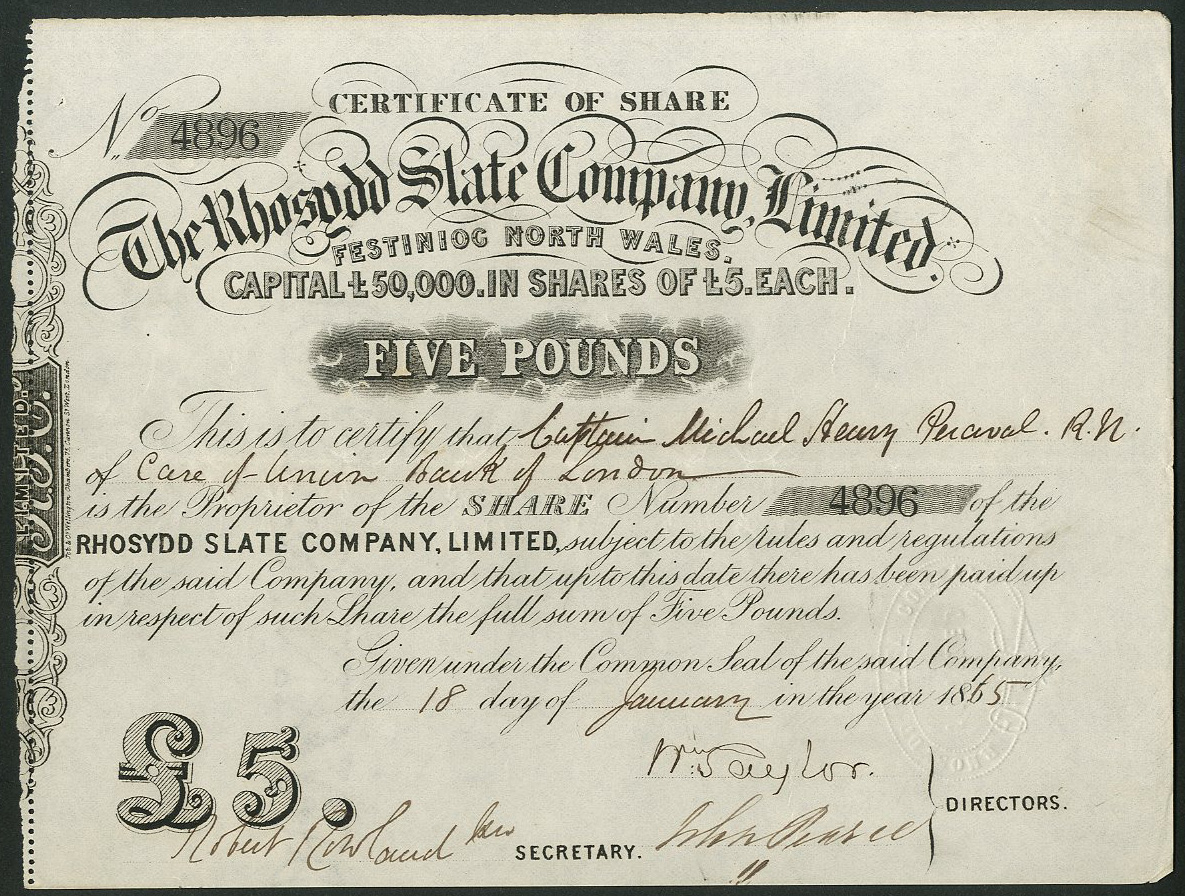 CERTIFICATE OF SHARE
No. 4896
The Rhosydd Slate Company, Limited.
FESTINIOG NORTH WALES.
CAPITAL £50,000. IN SHARES OF £5. EACH.
FIVE POUNDS
This is to certify that Captain Michael Henry Percival. R.N.
of Care of Union Bank of London
is the Proprietor of the SHARE Number 4896 of the
RHOSYDD SLATE COMPANY, LIMITED, subject to the rules and regulations
of the said Company, and that up to this date there has been paid up
in respect of such Share the full sum of Five Pounds.
Given under the Common Seal of the said Company,
the 18 day of January in the year 1865
£5.
Wm Taylor.
DIRECTORS.
Robert Rowland
SECRETARY.
John Pearce
LIMITED.